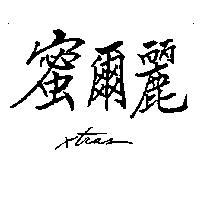 蜜爾麗
xtras